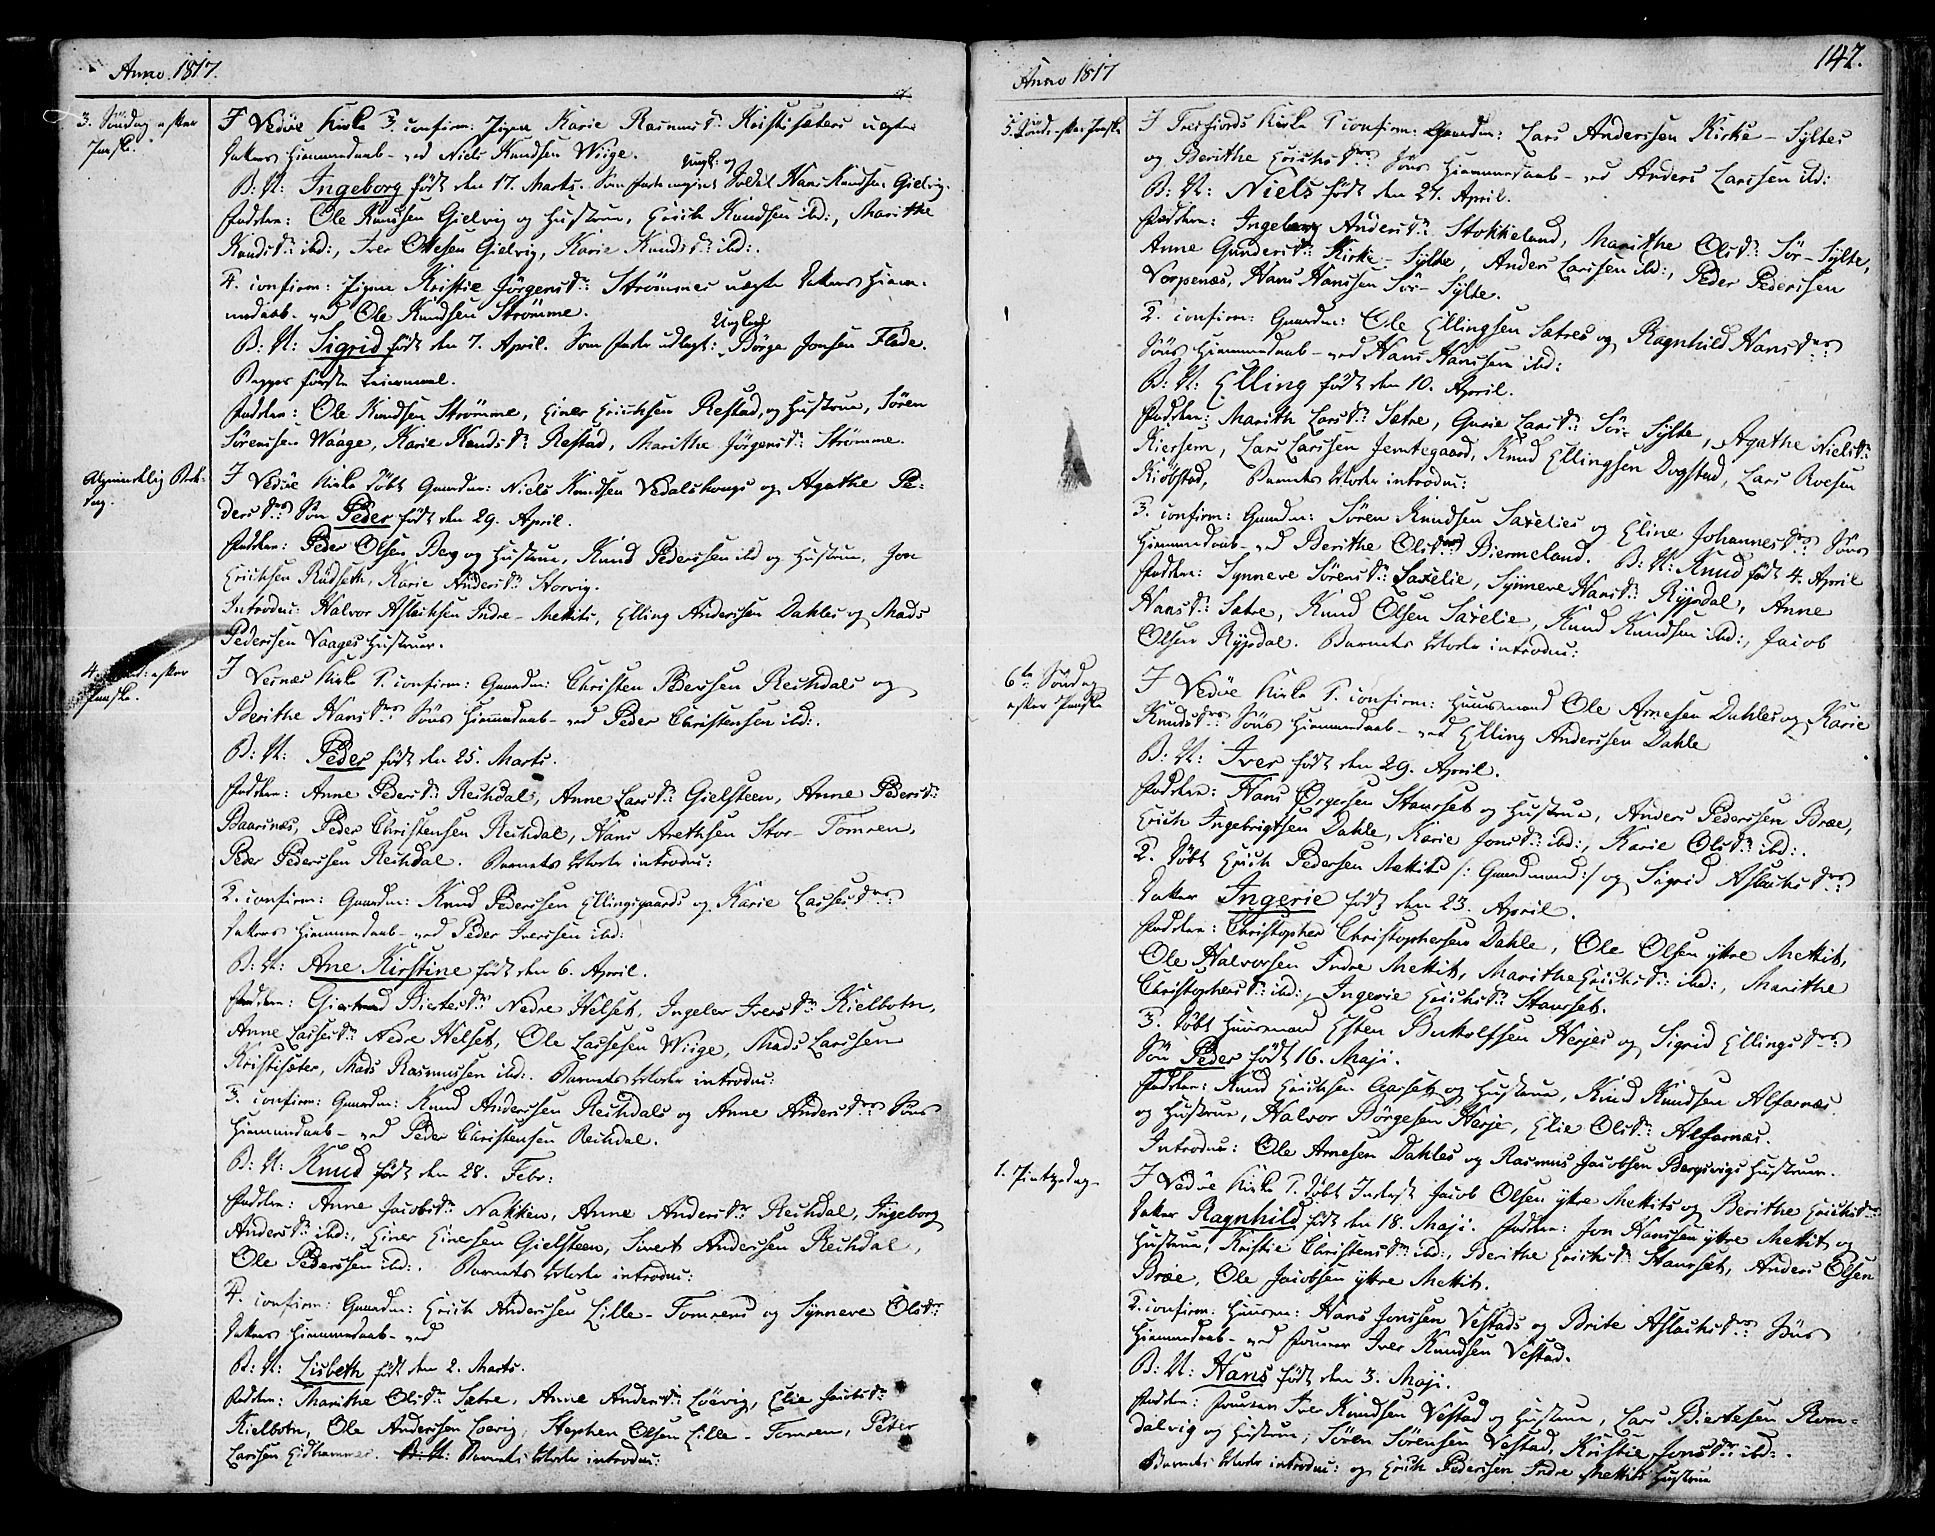 Anno. 1817.
3. Søndag efter
Paask:
I Vedøe Kirke 3. confirm: Pigen Karie Rasmusdr: Kristisæters uægte
Datters Hiemmedaab - ved Niels Knudsen Wiige.
B: N: Ingeborg født den 17. Marts. Som Fader angivet Ungk: og Soldat Hans Knudsen Gielvig.
Faddere: Ole Knudsen Gielvig og Hustrue, Erich Knudsen ibd:, Marithe
Knudsdr: ibd:, Iver Olsen Gielvig, Karie Knudsdr: ibd:.
4. confirm: Pigen Kristie Jørgensdr: Strømmes uægte Datters Hiem-
medaab - ved Ole Knudsen Strømme.
B: N: Sigrid født den 7. April. Som Fader udlagt: Ungkarl Børge Jonsen Flade.
Begges første Leiermaal.
Faddere: Ole Knudsen Strømme, Einer Erichsen Restad, og Hustrue, Søren
Sørensen Waage, Karie Knudsdr: Restad, Marithe Jørgensdr: Strømme.
Almindelig Bede-
dag.
I Vedøe Kirke døbt Gaardm: Niels Knudsen Vedalshougs og Agathe Pe-
dersdrs Søn Peder født den 29. April.
Faddere: Peder Olsen Berg og Hustrue, Knud Pederssen ibd og Hustrue, Jon
Erichsen Rødseth, Karie Andersdr: Storvig.
Introdu: Halvor Aslachsen Indre-Mekits, Elling Anderssen Dahles og Mads
Pederssen Vaages Hustruer.
4. Sønd: efter
Paaske.
I Vernæs Kirke 1. confirm: Gaardm: Christen Pederssen Rechdals og
Berithe Hansdrs Søns Hiemmedaab - ved Peder Christensen ibd:.
B: N: Peder født den 25. Marts.
Faddere: Anne Pedersdr: Rechdal, Anne Larsdr: Gielsteen, Anne Pedersdr:
Baarsnes, Peder Christensen Rechdal, Hans Arethsen Stor-Tomren,
Peder Pederssen Rechdal. Barnets Moder introdu:
2. confirm: Gaardm: Knud Pederssen Ellingsgaards og Karie Lassesdrs:
Datters Hiemmedaab - ved Peder Iverssen ibd:
B: N: Ane Kirstine født den 6. April.
Faddere: Giertrud Biertesdr: Nedre Helset, Ingeler Iversdr: Kielbotn,
Anne Lassesdr: Nedre Helset, Ole Lassesen Wiige, Mads Larssen
Kristisæter, Mads Rasmussen ibd:. Barnets Moder introdu:
3. confirm: Gaardm: Knud Anderssen Rechdals og Anne Andersdrs Søns
Hiemmedaab - ved Peder Christensen Rechdal.
B: N: Knud født den 28. Febr:
Faddere: Anne Jacobsdr: Nakken, Anne Andersdr: Rechdal, Ingeborg
Andersdr: ibd:, Einer Einersen Gielsteen, Sivert Anderssen Rechdal,
Ole Pederssen ibd:. Barnets Moder introdu:
4. confirm: Gaardm: Erich Anderssen Lille-Tomrens og Synneve Olsdr:
Datters Hiemmedaab - ved
B: N: Lisbeth født den 2. Marts.
Faddere: Marithe Olsdr: Sætre, Anne Andersdr: Loevig, Elie Jacobsdr:
Kielbotn, Ole Anderssen Loevig, Stephen Olsen Lille-Tomren, Peter
Larssen Eidhammer. Barnets Moder introdu:
Anno 1817
142.
5. Sønd: efter Paaske
I Tresfiords Kirke 1. confirm: Gaardm: Lars Anderssen Kirke-Syltes
og Berithe Erichsdrs: Søns Hiemmedaab - ved Anders Larssen ibd:
B: N: Niels født den 27. April.
Faddere: Ingeborg Andersdr: Stokkeland, Marithe Olsdr: Sør-Sylte,
Anne Gundersdr: Kirke-Sylte, Anders Larssen ibd:, Peder Pederssen
Vorpenæs, Hans Hanssen Sør-Sylte.
2. confirm: Gaardm: Ole Ellingsen Sætres og Ragnhild Hansdrs:
Søns Hiemmedaab - ved Hans Hanssen ibd:
B: N: Elling født den 10. April.
Faddere: Marith Larsdr: Sætre, Gurie Larsdr: Sør-Sylte, Agathe Nielsdr:
Kiersem, Lars Larssen Jentegaard, Knud Ellingsen Dogstad, Lars Roesen
Kiöbstad, Barnets Moder introdu:
3. confirm: Gaardm: Søren Knudsen Saxelies og Eline Johannesdrs: Søns
Hiemmedaab - ved Berithe Olsdr: Biermeland. B: N: Knud født 4. April
Faddere: Synneve Sørensdr: Saxelie, Synneve Hansdr: Rypdal, Anne
Hansdr: Sætre, Knud Olsen Saxelie, Knud Knudsen ibd:, Jacob
Olsen Rypdal. Barnets Moder introdu:
6te Søndag
efter Paaske
I Vedøe Kirke 1. confirm: Huusmand Ole Arnesen Dahles og Karie
Knudsdrs Søns Hiemmedaab - ved Elling Anderssen Dahle
B: N: Iver født den 29. April.
Faddere: Hans Ørgersen Staurset og Hustrue, Anders Pederssen Bræe,
Erich Ingebrigtsen Dahle, Karie Jonsdr: ibd:, Karie Olsdr: ibd:.
2. døbt Erich Pedersen Mekits /: Gaardmand :/ og Sigrid Aslachsdrs:
Datter Ingerie født den 23. April.
Faddere: Christopher Christophersen Dahle, Ole Olsen yttre Mekit,
Ole Halvorsen Indre Mekit, Marithe Erichsdr: ibd:, Marithe
Christophersdr: ibd:, Ingerie Erichsdr: Staurset.
3. døbt Huusmand Esten Botholfssen Herjes og Sigrid Ellingsdrs:
Søn Peder født 16. Maji.
Faddere: Knud Erichsen Aarset og Hustrue, Knud Knudsen Alfarnæs
og Hustrue, Halvor Børgesen Herje, Elie Olsdr: Alfarnæs.
Introdu: Ole Arnesen Dahles og Rasmus Jacobsen Bergsvigs Hustruer.
1. Pintzedag
I Vedøe Kirke 1. døbt Inderst Jacob Olsen yttre Mekits og Berithe Erichsdrs:
Datter Ragnhild født den 18. Maji. Faddere: Jon Hanssen yttre Mekit og
Hustrue, Kristie Christensdr: ibd:, Berithe Erichsdr: Staurset, Anders Olsen
Bræe, Ole Jacobsen yttre Mekit.
2. confirm: Huusm: Hans Jonssen Vestads og Brite Aslachsdrs: Søns
Hiemmedaab - ved Iver Knudsen Vestad.
B: N: Hans født den 3. Maji.
Faddere: Iver Knudsen Vestad og Hustrue, Lars Biertesen Rom-
dalvig og Hustrue, Søren Sørensen Vestad, Kristie Jonsdr: ibd:.
Barnets Moder introdu: og Erich Pederssen Indre Mekits Hustrue